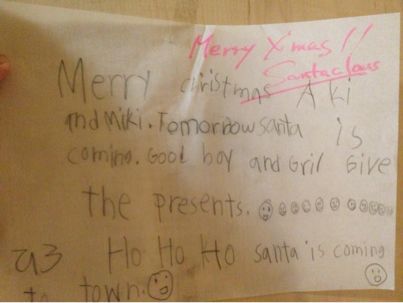 Merry X'mas!!
Santaclaus
Merry christmas Aki
and Miki. Tomorrow santa is
coming. Good boy and Gril Give
the presents.
Ho Ho Ho santa is coming
to town.